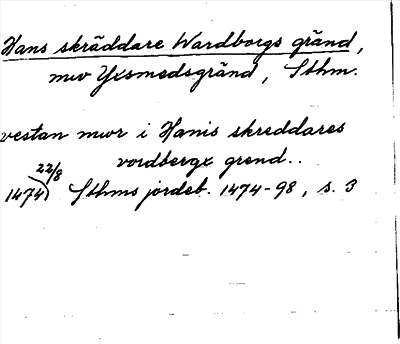 Hans skräddare Wardborgs gränd,
nuv Yxsmedsgränd, Sthm.
vestan mwr i Hanis skreddares
vordbergx grend..
22/8
1474) Sthms jordeb. 1474-98, s. 3